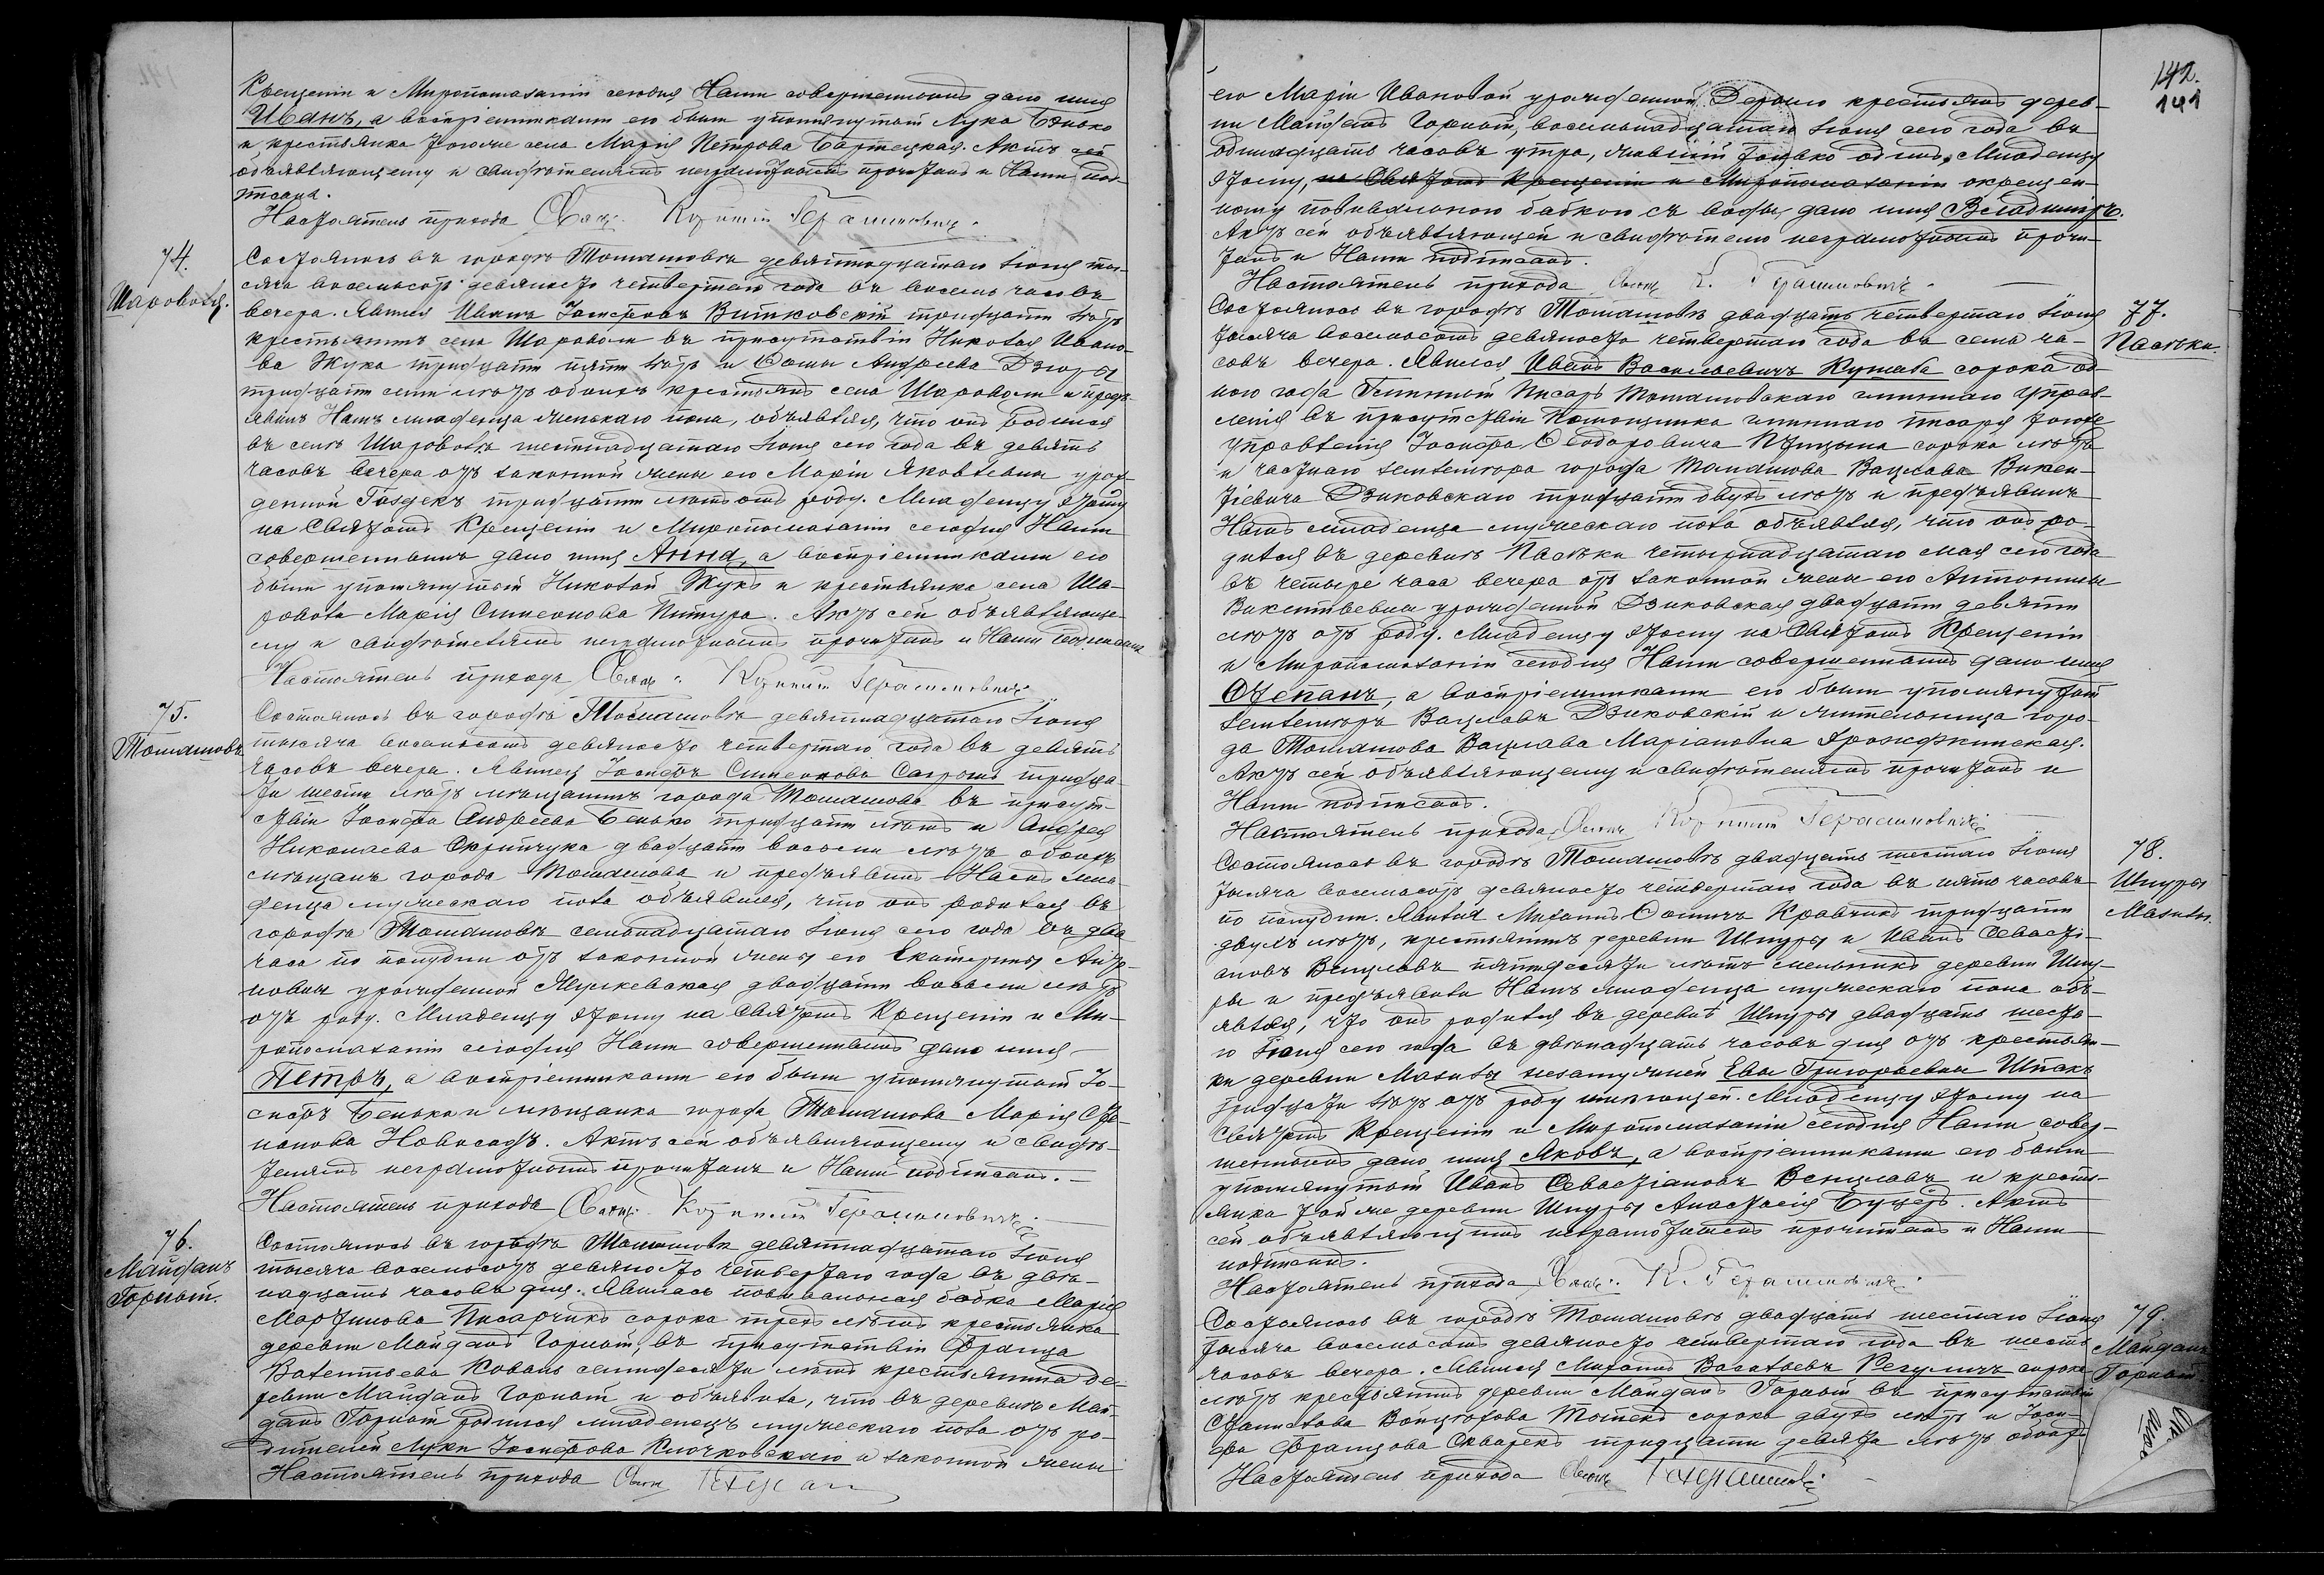 Крещеніи и Миропомазаніи сегодня Нами совершенномъ дано имя
Иванъ, а воспріемниками его были упомянутый Лука Бэнько
и крестьянка тогоже села Марія Петрова Бартецкая. Актъ сей
объявляющему и свидѣтелямъ неграмотнымъ прочитанъ и Нами под-
писанъ.
Настоятель прихода Свящ. Герасимовичъ.
74.
Шароволя.
Состоялось въ городѣ Томашовѣ девятнадцатаго Іюня ты-
сяча восемьсотъ девяносто четвертаго года въ восемь часовъ
вечера. Явился Иванъ Іосифовъ Витковскій тридцати лѣтъ
крестьянинъ села Шароволи въ присутствіи Николая Ивано-
ва Жука тридцати пяти лѣтъ и Ѳомы Андреева Дзюры
тридцати семи лѣтъ обоихъ крестьянъ села Шароволи и предъ-
явилъ Намъ младенца женскаго пола, объявляя, что онъ родился
въ селѣ Шароволѣ шестнадцатаго Іюня сего года въ девять
часовъ вечера отъ законной жены его Маріи Яковлевны урож-
денной Газдекъ тридцати лѣтъ отъ роду. Младенцу этому
на Святомъ Крещеніи и Миропомазаніи сегодня Нами
совершенномъ дано имя Анна, а воспріемниками его
были упомянутый Николай Жукъ и крестьянка села Ша-
роволя Марія Симеонова Питура. Актъ сей объявляюще-
му и свидѣтелямъ неграмотнымъ прочитанъ и Нами подписанъ
Настоятель прихода Свящ. Герасимовичъ
75.
Томашовъ
Состоялось въ городѣ Томашовѣ девятнадцатаго Іюня
тысяча восемьсотъ девяносто четвертаго года въ девять
часовъ вечера. Явился Іосифъ Симеоновъ Сапронъ тридца-
ти шести лѣтъ мѣщанинъ города Томашова въ присут-
ствіи Іосифа Андреева Бенько тридцати лѣтъ и Андрея
Николаева Скрипчука двадцати восьми лѣтъ обоихъ
мѣщанъ города Томашова и предъявилъ Намъ мла-
денца мужескаго пола объявляя, что онъ родился въ
городѣ Томашовѣ семнадцатаго Іюня сего года въ два
часа по полудни отъ законной жены его Екатерины Анто-
новны урожденной Жулкевская двадцати восьми лѣтъ
отъ роду. Младенцу этому на Святомъ Крещеніи и Ми-
ропомазаніи сегодня Нами совершенномъ дано имя
Петръ, а воспріемниками его были упомянутый Іо-
сифъ Бенько и мѣщанка города Томашова Марія Сте-
панова Новосадъ. Актъ сей объявляющему и свидѣ-
телямъ неграмотнымъ прочитанъ и Нами подписанъ.
Настоятель прихода Свящ. Герасимовичъ.
76.
Майданъ
Горный.
Состоялось въ городѣ Томашовѣ девятнадцатаго Іюня
тысяча восемьсотъ девяносто четвертаго года въ двѣ-
надцать часовъ дня. Явилась повивальная бабка Марія
Мартинова Писарчикъ сорока трехъ лѣтъ крестьянка
деревни Майданъ Горный, въ присутствіи Франца
Валентьева Коваль семидесяти лѣтъ крестьянина де-
ревни Майданъ Горный и объявила, что въ деревнѣ Май-
данъ Горный родился младенецъ мужескаго пола отъ ро-
дителей Луки Іосифова Клочковскаго и законной жены
Настоятель прихода Свящ.
142.
141
его Маріи Ивановой урожденной Дерало крестьянъ дерев-
ни Майданъ Горный, восемнадцатаго Іюня сего года въ
одинадцать часовъ утра, жившій только одинъ. Младенцу
этому, на Святомъ Крещеніи и Миропомазаніи окрещен-
ному повивальною бабкою съ воды, дано имя Владиміръ.
Актъ сей объявляющей и свидѣтелю неграмотнымъ прочи-
танъ и Нами подписанъ.
Настоятель прихода Свящ. К. Герасимовичъ.
77.
Пасѣки.
Состоялось въ городѣ Томашовѣ двадцать четвертаго Іюня
тысяча восемьсотъ девяносто четвертаго года въ семь ча-
совъ вечера. Явился Иванъ Васильевичъ Кушаба сорока од-
ного года Гминный Писарь Томашовскаго гминнаго Управ-
ленія въ присутствіи Помощника гминнаго писаря тогоже
Управленія Іосифа Ѳеодоровича Птицына сорока лѣтъ
и частнаго землемѣра города Томашова Вацлава Викен-
тіевича Дзиковскаго тридцати двухъ лѣтъ и предъявилъ
Намъ младенца мужескаго пола объявляя, что онъ ро-
дился въ деревнѣ Пасѣки четырнадцатаго мая сего года
въ четыре часа вечера отъ законной жены его Антонины
Викентьевны урожденной Дзиковская двадцати девяти
лѣтъ отъ роду. Младенцу этому на Святомъ Крещеніи
и Миропомазаніи сегодня Нами совершенномъ дано имя
Стефанъ, а воспріемниками его были упомянутый
землемѣръ Вацлавъ Дзиковскій и жительница горо-
да Томашова Вацлава Маріановна
Актъ сей объявляющему и свидѣтелямъ прочитанъ и
Нами подписанъ.
Настоятель прихода, Свящ. Герасимовичъ
78.
Шпуры
Мазилы.
Состоялось въ городѣ Томашовѣ двадцать шестаго Іюня
тысяча восемьсотъ девяносто четвертаго года въ пять часовъ
по полудни. Явился Михаилъ Ѳоминъ Кравчикъ тридцати
двухъ лѣтъ, крестьянинъ деревни Шпуры и Иванъ Севасті-
ановъ Венцлавъ пятидесяти лѣтъ мельникъ деревни Шпу-
ры и предъявили Намъ младенца мужескаго пола объ-
являя, что онъ родился въ деревнѣ Шпуры двадцать шеста-
го Іюня сего года въ двѣнадцать часовъ дня отъ крестьян-
ки деревни Мазилы незамужней Евы Григорьевны Шпакъ
тридцати лѣтъ отъ роду имѣющей. Младенцу этому на
Святомъ Крещеніи и Миропомазаніи сегодня Нами совер-
шенномъ дано имя Яковъ, а воспріемниками его были
упомянутый Иванъ Севастіановъ Венцлавъ и кресть-
янка тойже деревни Шпуры Анастасія Буцеръ. Актъ
сей объявляющимъ неграмотнымъ прочитанъ и Нами
подписанъ.
Настоятель прихода, Свящ. К. Герасимовичъ.
79.
Майданъ
Горный.
Состоялось въ городѣ Томашовѣ двадцать шестаго Іюня
тысяча восемьсотъ девяносто четвертаго года въ шесть
часовъ вечера. Явился Михаилъ Васильевъ Регуличъ сорока
лѣтъ крестьянинъ деревни Майданъ Горный въ присутствіи
Станислава Войцехова сорока двухъ лѣтъ и Іоси-
фа Францова Скварекъ тридцати девяти лѣтъ обоихъ
Настоятель прихода Свящ.